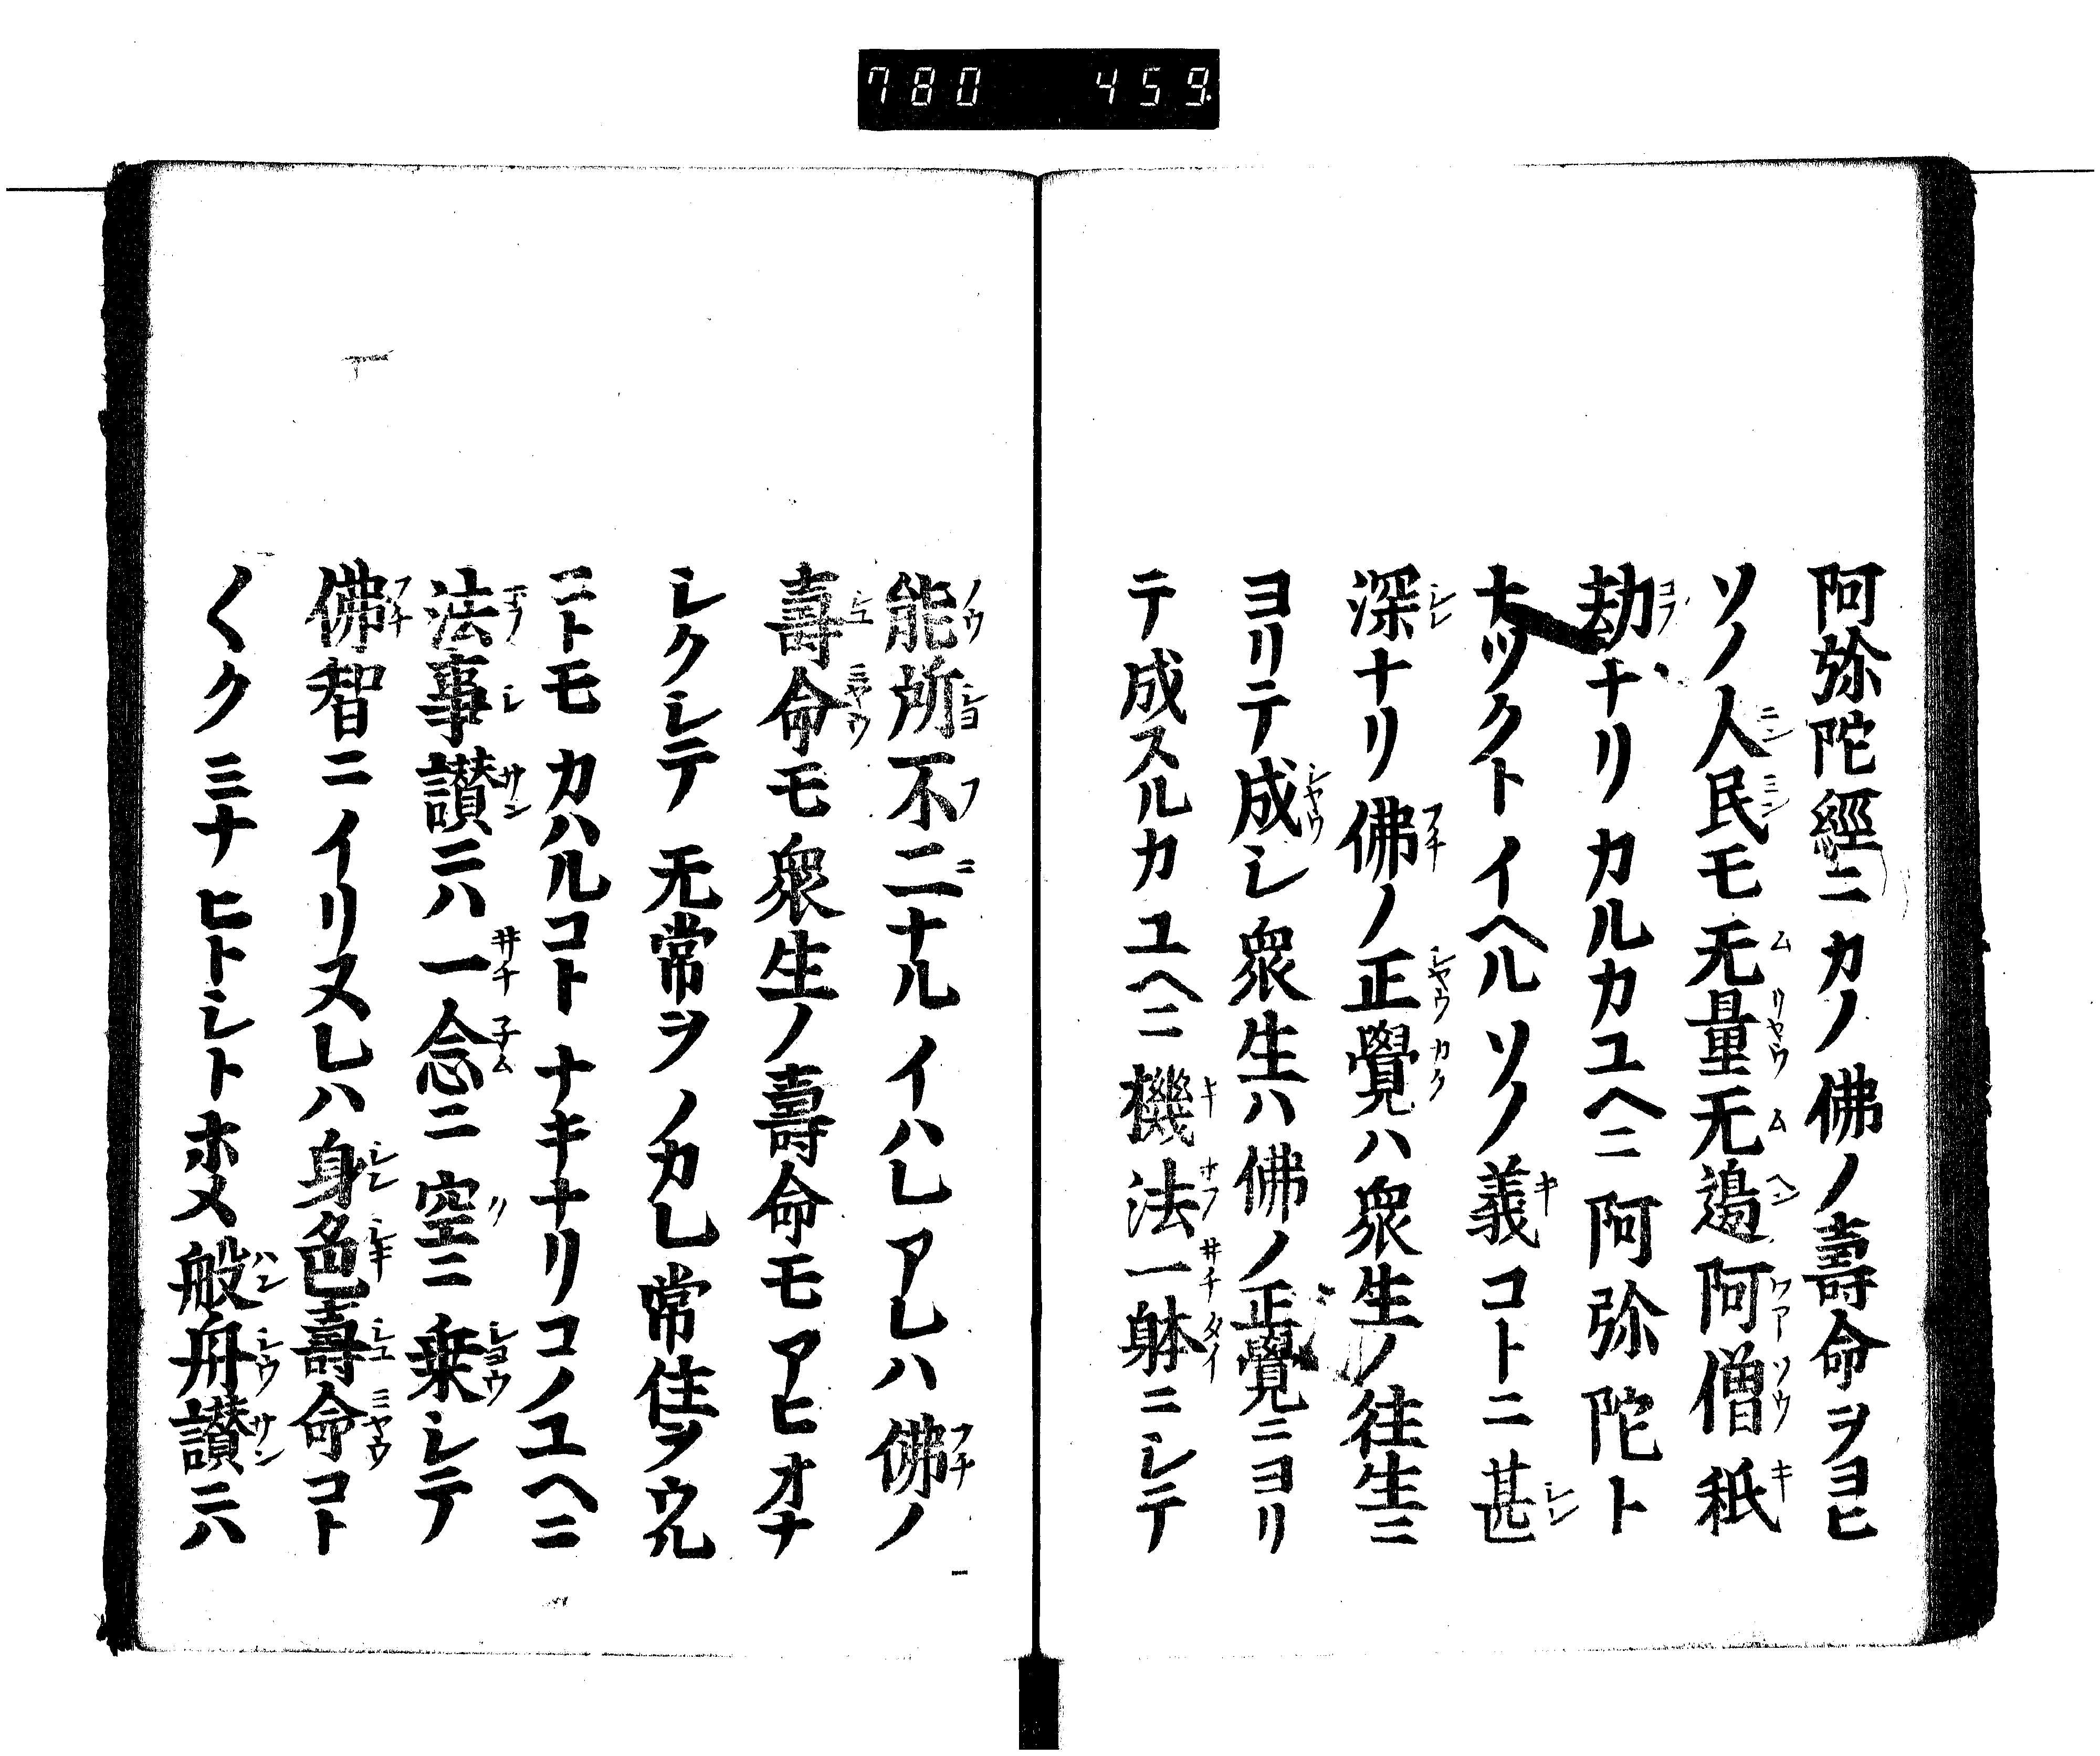 780 459
阿弥陀經ニカノ佛ノ壽命ヲヨヒ
ソノ人民モ无量无邉阿僧祇
劫ナリカルカユヘニ阿弥陀ト
ナツクトイヘルソノ義コトニ甚
深ナリ佛ノ正覺ハ衆生ノ往生ニ
ヨリテ成シ衆生ハ佛ノ正覺ニヨリ
テ成スルカユヘニ機法一躰ニシテ
能所不二ナルイハレアレハ佛ノ
壽命モ衆生ノ壽命モアヒオナ
シクシテ无常ヲノカレ常住ヲウル
コトモカハルコトナキナリコノユヘニ
法事讃ニハ一念ニ空ニ乗シテ
佛智ニイリヌレハ身色壽命コト
〱クミナヒトシトホメ般舟讃ニハ